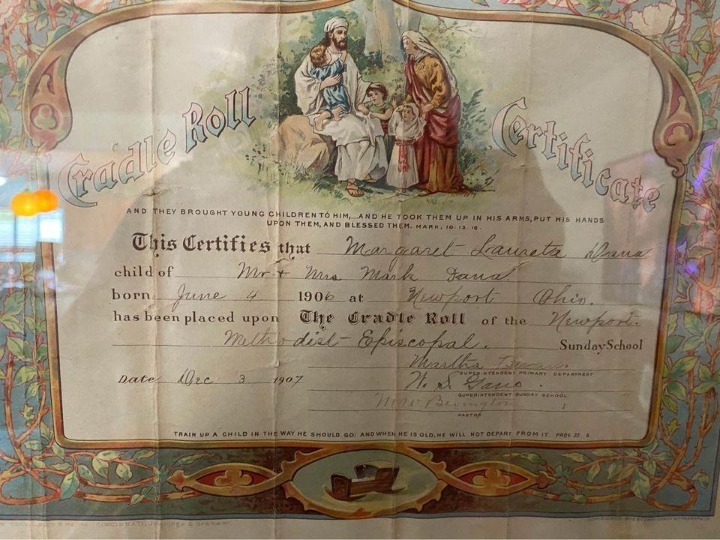 Cradle Roll Certificate
AND THEY BROUGHT YOUNG CHILDREN TO HIM,... AND HE TOOK THEM UP IN HIS ARMS, PUT HIS HANDS
UPON THEM, AND BLESSED THEM. MARK, 10-13, 16.
This Certifies that Margaret Laureta Dana
child of Mr + Mrs Mark Dana
born June 4 1906 at Newport Ohio.
has been placed upon The Cradle Roll of the Newport.
Methodist Episcopal. Sunday School
Martha
SUPERINTENDENT PRIMARY DEPARTMENT
Date Dec 3 1907
SUPERINTENDENT SUNDAY SCHOOL
PASTOR
TRAIN UP A CHILD IN THE WAY HE SHOULD GO: AND WHEN HE IS OLD, HE WILL NOT DEPART FROM IT. PROV. 22. 6